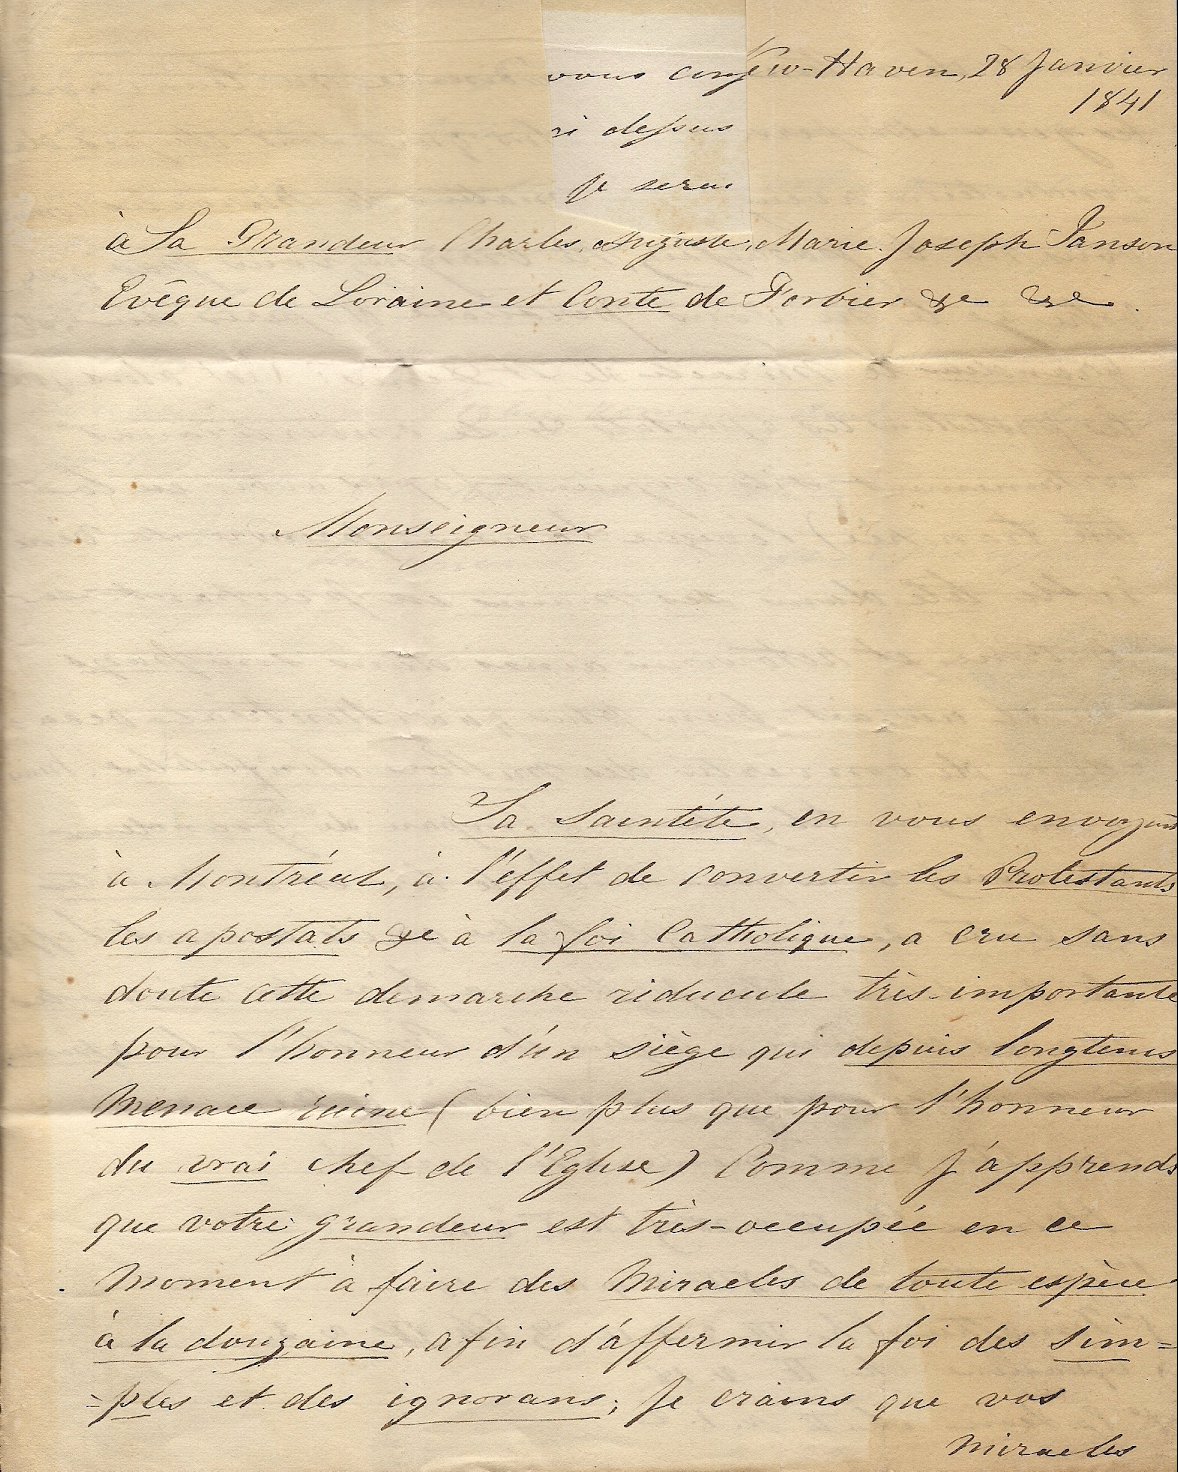 vous conf ew-Haven, 28 Janvier
1841
ci dessus
je serai
à Sa Grandeur Charles, Auguste, Marie. Joseph Janson
Evêque de Loraine et Conte de Forbier &c &c.
Monseigneur
Sa Saintété, en vous envoyant
à Montréal, à l'effet de convertir les Protestants
les apostats &c à la foi Catholique, a cru sans
doute cette demarche riducule très-importante
pour l'honneur d'un siège qui depuis longtems
menace ruine (bien plus que pour l'honneur
du vrai chef de l'Eglise) Comme J'apprends
que votre grandeur est très-occupée en ce
moment à faire des Miracles de toute espèce
à la douzaine, afin d'affermir la foi des Sim=
=ples et des ignorans; Je crains que vos
miracles